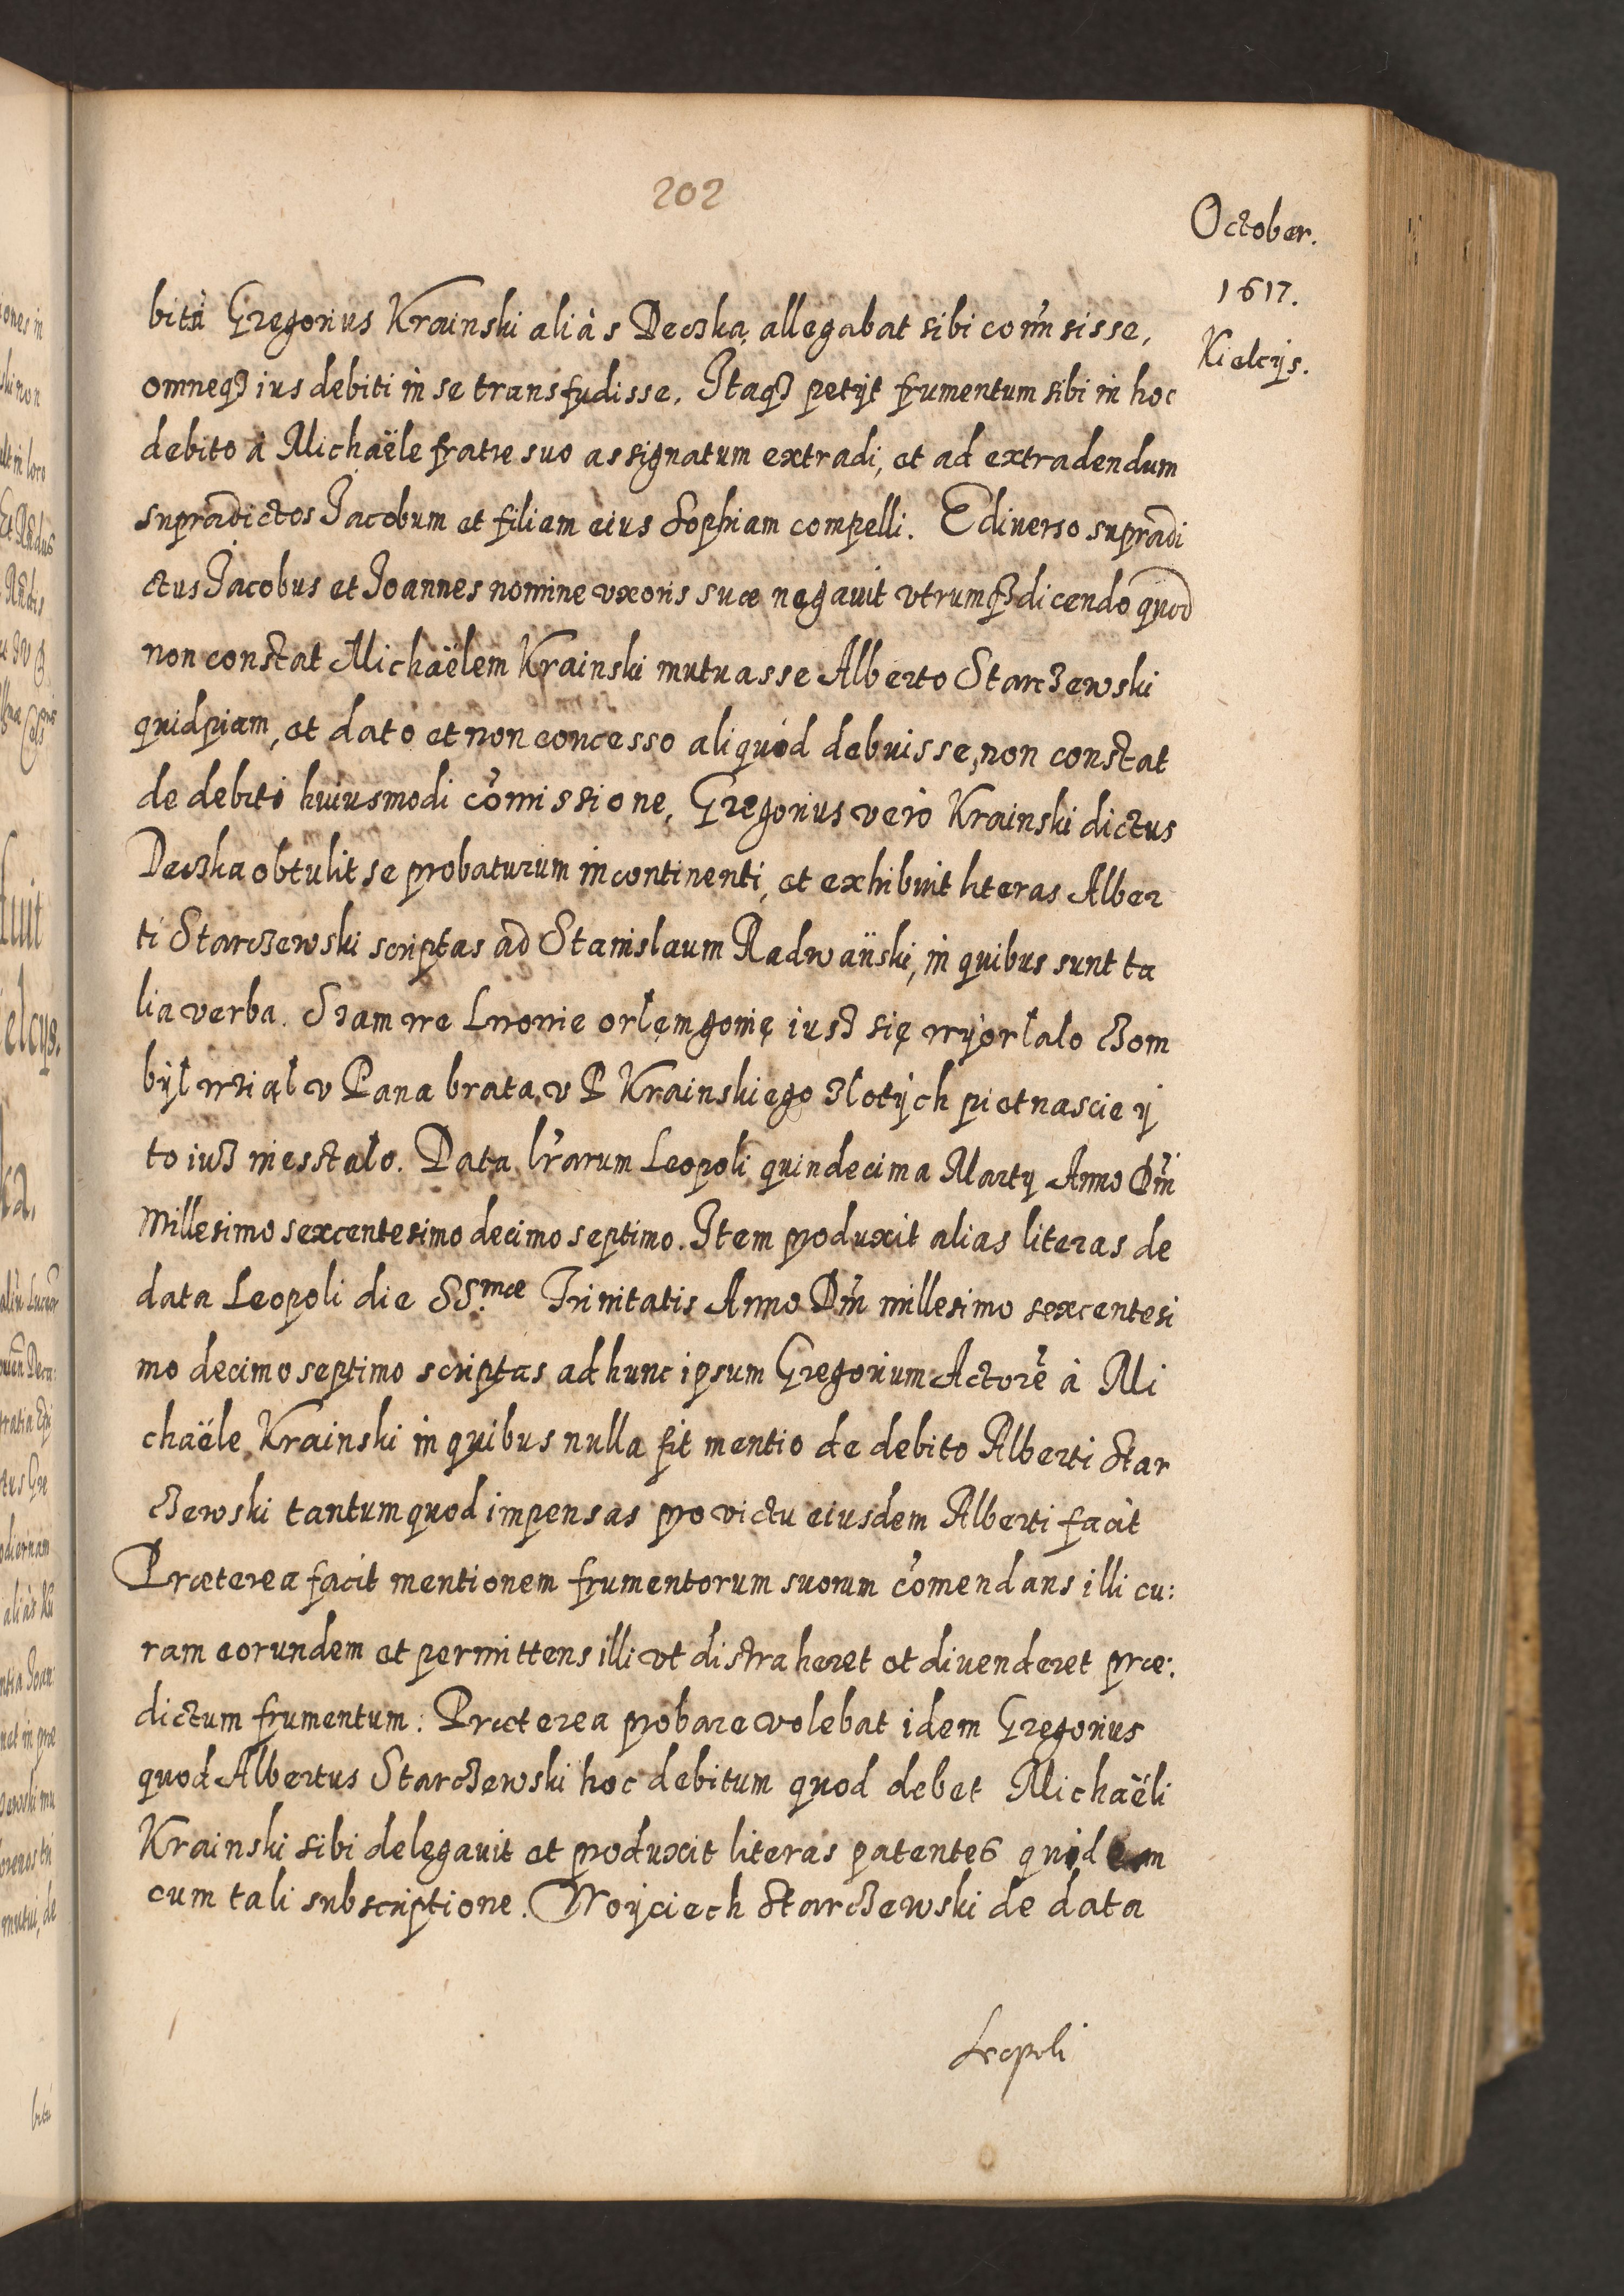 202
October.
1617.
Kielcijs.
bitū Gregorius Krainski aliàs Deczka, allegabat sibi com̃isisse,
omneqꝫ ius debiti in se transfudisse. Itaqꝫ petijt frumentum sibi in hoc
debito à Michaële fratre suo assignatum extradi, et ad extradendum
supradictos Jacobum et filiam eius Sophiam compelli. E diuerso supradi
ctus Jacobus et Joannes nomine vxoris suæ negauit vtrumqꝫ dicendo quod
non constat Michaëlem Krainski mutuasse Alberto Starczewski
quidpiam, et dato et non concesso aliquid debuisse, non constat
de debiti huiusmodi com̃issione, Gregorius verò Krainski dictus
Deczka obtulit se probaturum incontinenti, et exhibuit literas Alber
ti Starczewski scriptas ad Stanislaum Radwański, in quibus sunt ta
lia verba. Szam we Lwowie orłem gonię iusz się wyorłało czom
był wziął v Pana brata, v P Krainskiego złotych pietnascie y
to iusz niesstało. Data lr̃arum Leopoli quindecima Martij Anno Dm̃
Millesimo sexcentesimo decimo septimo. Item produxit alias literas de
data Leopoli die SS.mæ Trinitatis Anno Dm̃ millesimo sexcentesi
mo decimo septimo scriptas ad hunc ipsum Gregorium Actorẽ à Mi
chaële Krainski in quibus nulla fit mentio de debito Alberti Star
czewski tantum quod impensas pro victu eiusdem Alberti facit
Præterea facit mentionem frumentorum suorum com̃endans illi cu:
ram eorundem et permittens illi vt distraheret et diuenderet præ:
dictum frumentum: Præterea probare volebat idem Gregorius
quod Albertus Starczewski hoc debitum quod debet Michaëli
Krainski sibi delegauit et produxit literas patentes quidem
cum tali subscriptione. Woyciech Starczewski de data
Leopoli